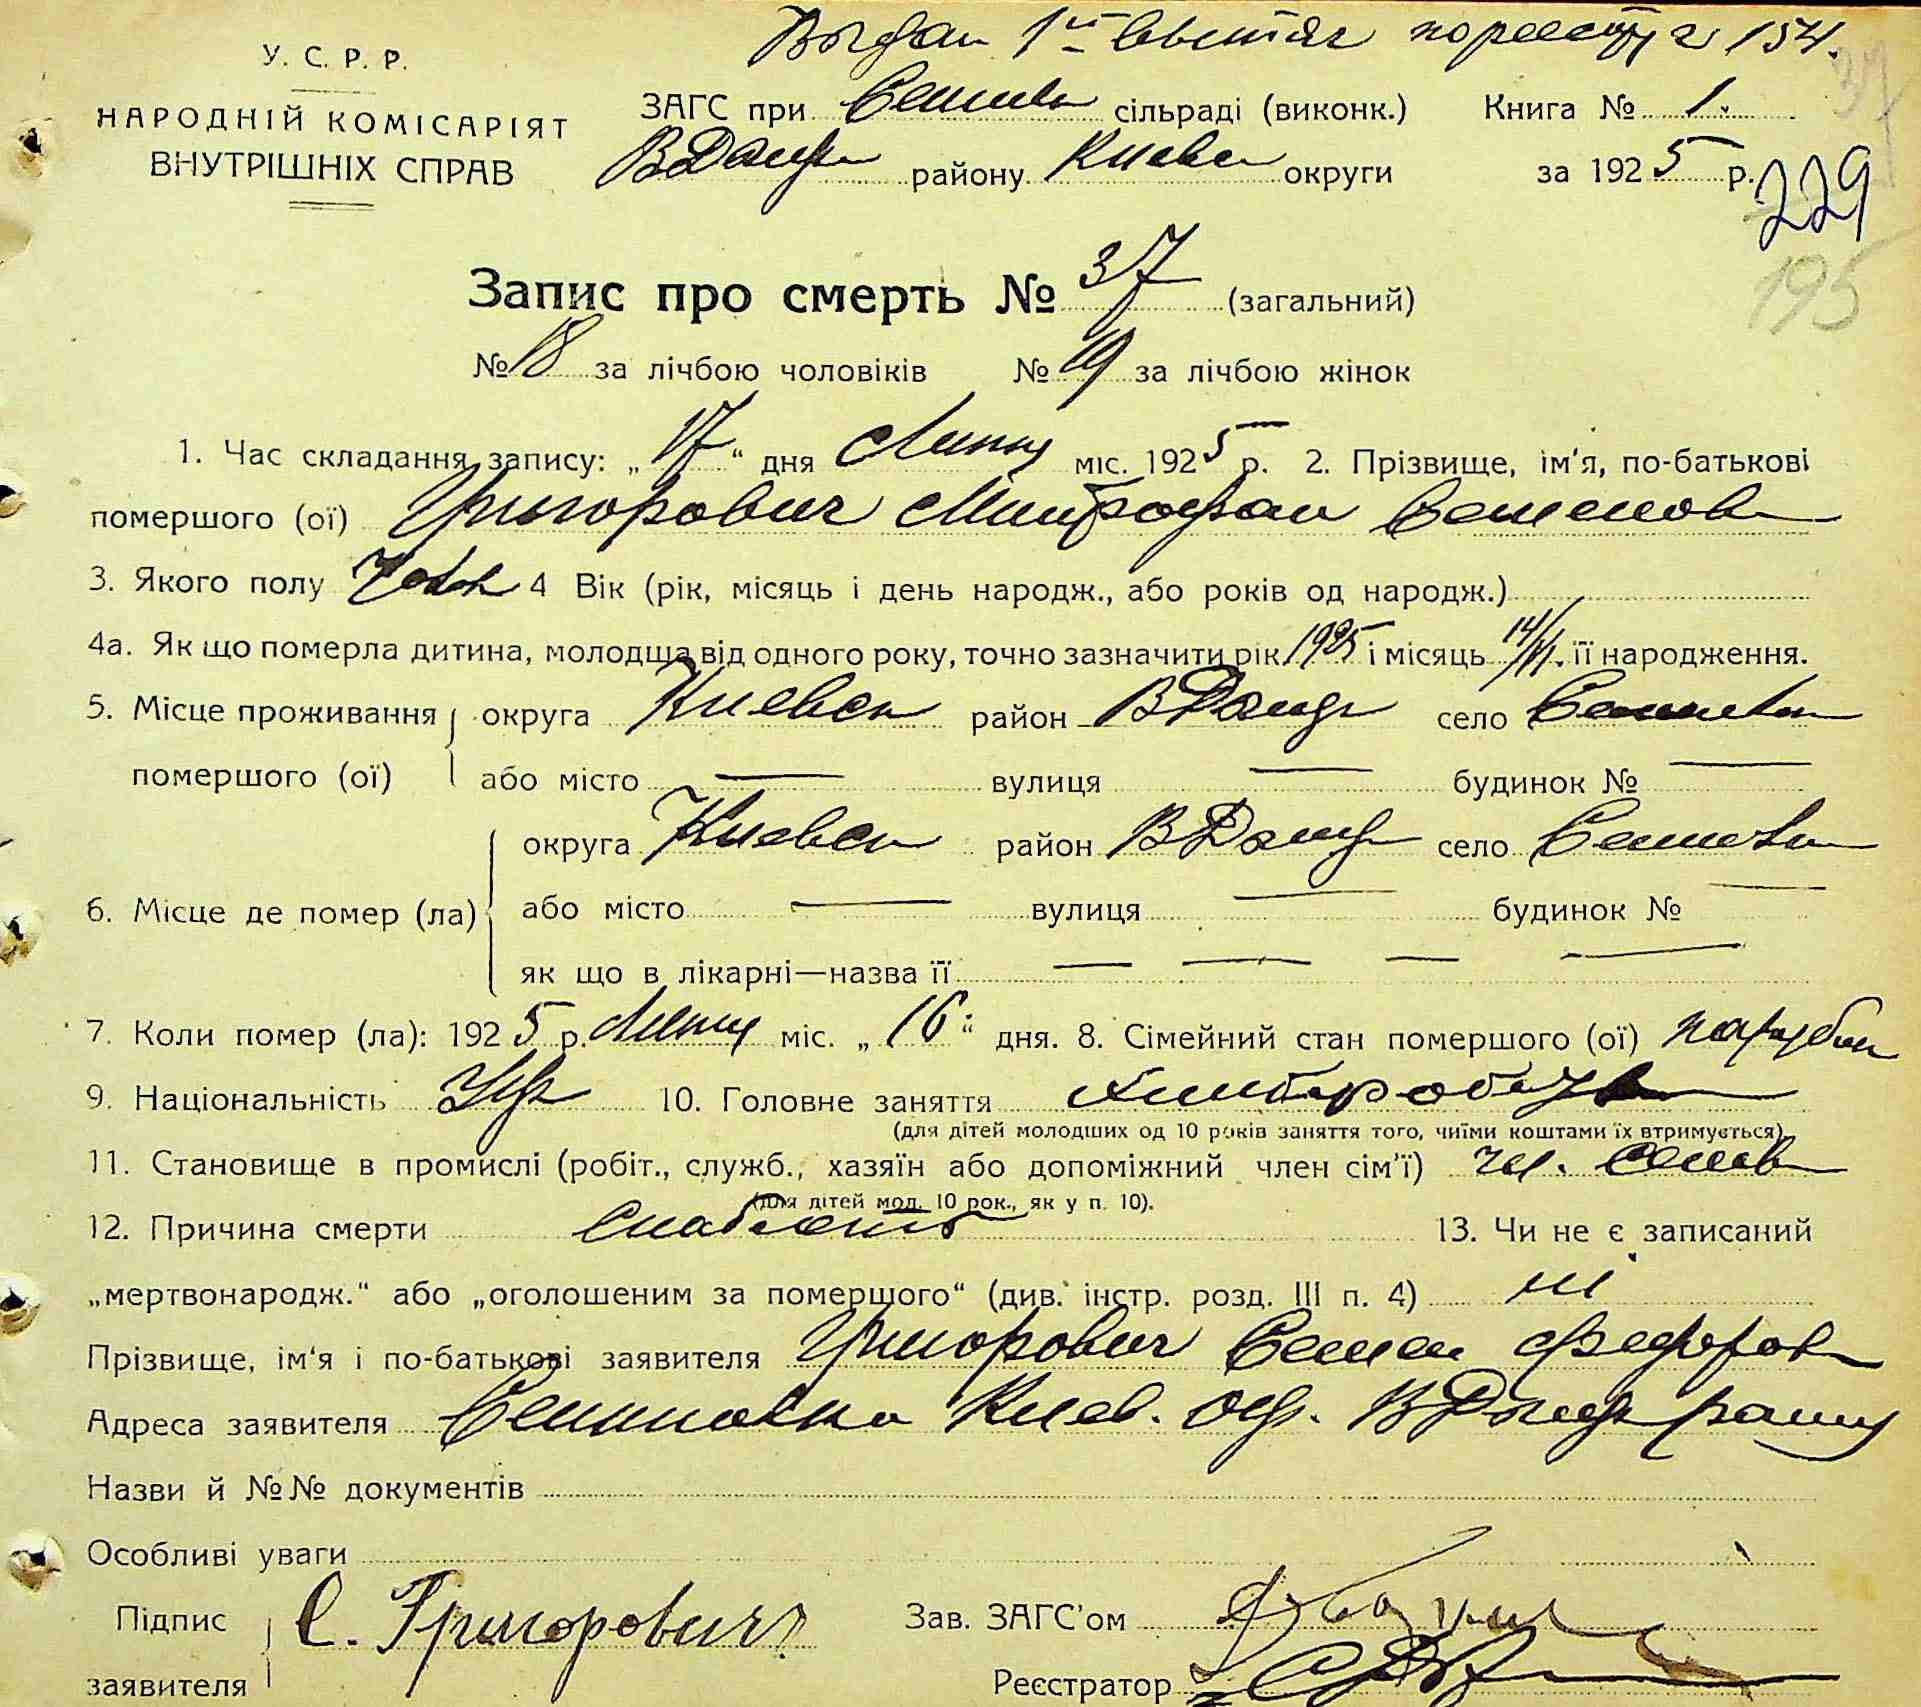 Выдан 1й 154.
У. С. Р. Р.
НАРОДНІЙ КОМІСАРІЯТ
ВНУТРІШНІХ СПРАВ
ЗАГС при сільраді (виконк.) Книга № 1.
району Киевс округи за 1925 р.
37
229
195
Запис про смерть № 37 (загальний)
№ 18 за лічбою чоловіків № 19 за лічбою жінок
1. Час складання запису: „17“ дня Липня міс. 1925 р. 2. Прізвище, ім'я, по-батькові
помершого (ої) Григорович Митрофан Семенов
3. Якого полу Чолов 4 Вік (рік, місяць і день народж., або років од народж.)
4а. Як що померла дитина, молодща від одного року, точно зазначити рік 1925 і місяць 14/VI. її народження.
5. Місце проживання округа Киевск район село
помершого (ої) або місто — вулиця — будинок № —
округа Киевск район село
6. Місце де помер (ла) або місто — вулиця — будинок № —
як що в лікарні—назва її — — — —
7. Коли помер (ла): 1925 р. Липня міс. „16“ дня. 8. Сімейний стан помершого (ої) парубок
9. Національність Укр 10. Головне заняття Хлібороб
(для дітей молодших од 10 років заняття того, чиїми коштами їх втримується)
11. Становище в промислі (робіт., служб., хазяїн або допоміжний член сім'ї) чл. семьи
(для дітей мол. 10 рок., як у п. 10).
12. Причина смерти Слабость 13. Чи не є записаний
„мертвонародж.“ або „оголошеним за помершого“ (див. інстр. розд. III п. 4) ні
Прізвище, ім'я і по-батькові заявителя Григорович Семен Федоров
Адреса заявителя Семиполка Киев. окр. району
Назви й №№ документів
Особливі уваги
Підпис С. Григорович Зав. ЗАГС'ом
заявителя Реєстратор